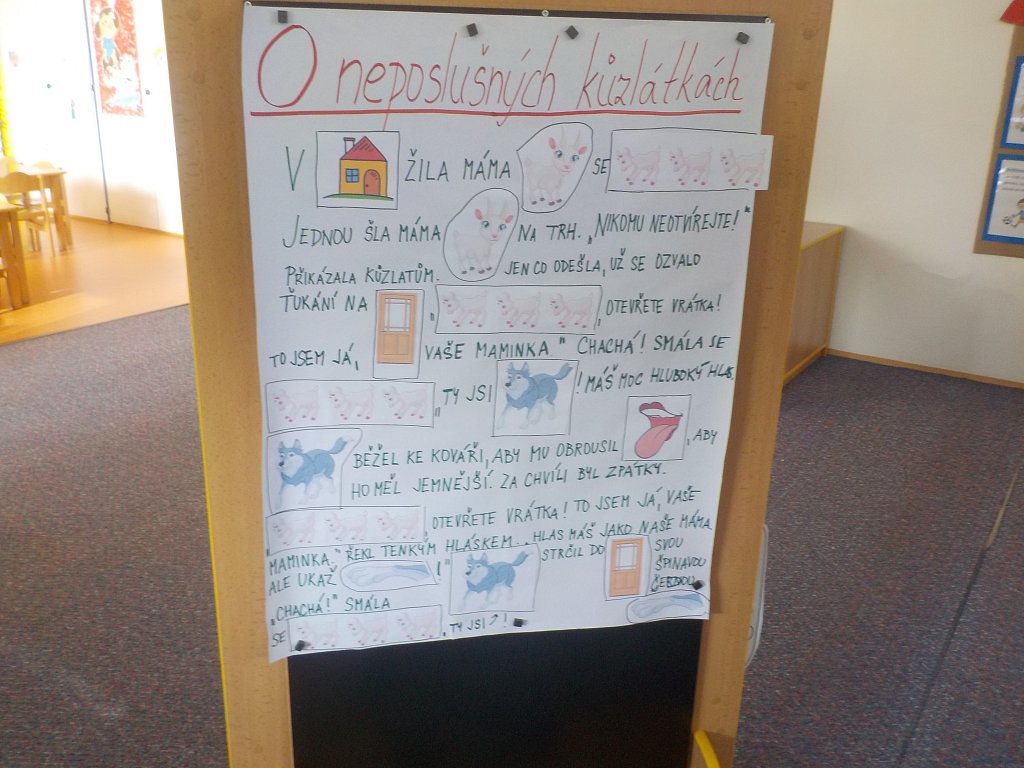 O neposlušných kůzlátkách
V ŽILA MÁMA SE
JEDNOU ŠLA MÁMA NA TRH. „NIKOMU NEOTVÍREJTE!"
PŘIKÁZALA KŮZLATŮM. JEN CO ODEŠLA, UŽ SE OZVALO
ŤUKÁNÍ NA „ , OTEVŘETE VRÁTKA!
TO JSEM JÁ, VAŠE MAMINKA." CHACHÁ! SMÁLA SE
„TY JSI ! MÁŠ MOC HLUBOKÝ HLAS.
BĚŽEL KE KOVÁŘI, ABY MU OBROUSIL , ABY
HO MĚL JEMNĚJŠÍ. ZA CHVÍLI BYL ZPÁTKY.
„ , OTEVŘETE VRÁTKA! TO JSEM JÁ, VAŠE
MAMINKA." ŘEKL TENKÝM HLÁSKEM. HLAS MÁŠ JAKO NAŠE MÁMA
ALE UKAŽ !" STRČIL DO SVOU
ŠPINAVOU
„CHACHÁ!" SMÁLA
SE „TY JSI !